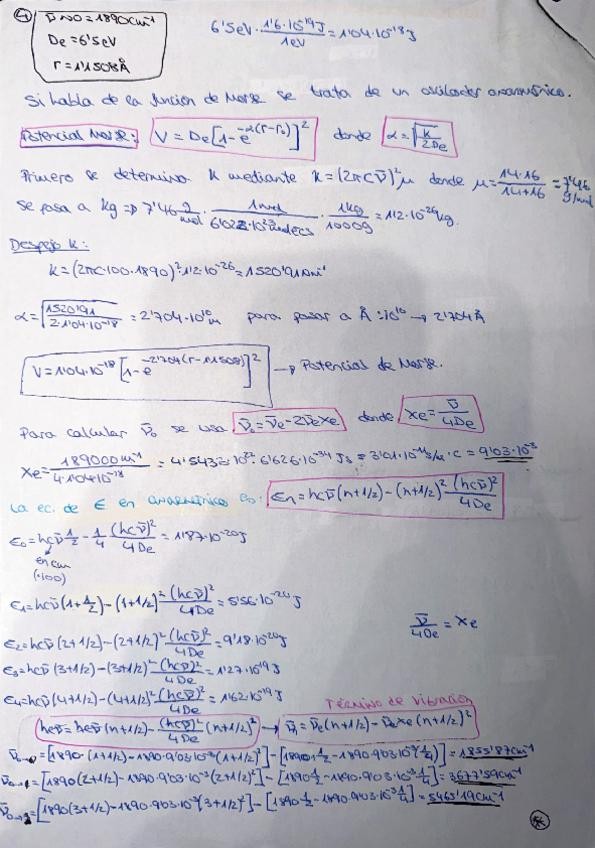 4
ν̄ NO = 1890cm⁻¹
De = 6'5eV
r = 1'1508Å
6'5eV · 1'6·10⁻¹⁹J / 1eV = 1'04·10⁻¹⁸J
Si habla de la función de Morse se trata de un oscilador anarmónico.
Potencial Morse: V = De[1-e^-α(r-r₀)]² donde α = √(k/2De)
Primero se determina K mediante k = (2πcν̄)²μ donde μ = 14·16/14+16 = 7'46 g/mol
Se pasa a kg ⇒ 7'46 g/mol · 1mol/6'022·10²³ · 1kg/1000g = 1'2·10⁻²⁶kg.
Despejo k:
k = (2πc·100·1890)²·1'2·10⁻²⁶ = 1520'91
α = √(1520'91/2·1'04·10⁻¹⁸) = 2'704·10¹⁰ para pasar a Å :10¹⁰ → 2'704Å
V = 1'04·10⁻¹⁸ [1-e^-2'704(r-1'1508)]² → Potencial de Morse.
Para calcular ν̄₀ se usa ν̄₀ = ν̄e - 2ν̄exe donde xe = ν̄/4De
xe = 189000m⁻¹/4·1'04·10⁻¹⁸ = 4'543·10²² · 6'626·10⁻³⁴Js = 3'01·10⁻¹¹s/m · c = 9'03·10⁻³
La ec. de E en anarmónico es: En = hcν̄(n+1/2) - (n+1/2)² (hcν̄)²/4De
E₀ = hcν̄ 1/2 - 1/4 (hcν̄)²/4De = 1'87·10⁻²⁰J
en cm
(·100)
E₁ = hcν̄(1+1/2) - (1+1/2)² (hcν̄)²/4De = 5'56·10⁻²⁰J
ν̄/4De = xe
E₂ = hcν̄(2+1/2) - (2+1/2)² (hcν̄)²/4De = 9'18·10⁻²⁰J
E₃ = hcν̄(3+1/2) - (3+1/2)² (hcν̄)²/4De = 1'27·10⁻¹⁹J
E₄ = hcν̄(4+1/2) - (4+1/2)² (hcν̄)²/4De = 1'62·10⁻¹⁹J
Término de vibración
hcν̄ = hcν̄(n+1/2) - (hcν̄)²/4De (n+1/2)² → ν̄ = ν̄e(n+1/2) - ν̄exe(n+1/2)²
= [1890·(1+1/2) - 1890·9'03·10⁻³(1+1/2)²] - [1890·1/2 - 1890·9'03·10⁻³(1/4)] = 1855'87cm⁻¹
= [1890(2+1/2) - 1890·9'03·10⁻³(2+1/2)²] - [1890·1/2 - 1890·9'03·10⁻³·1/4] = 3677'59cm⁻¹
= [1890(3+1/2) - 1890·9'03·10⁻³(3+1/2)²] - [1890·1/2 - 1890·9'03·10⁻³·1/4] = 5465'19cm⁻¹